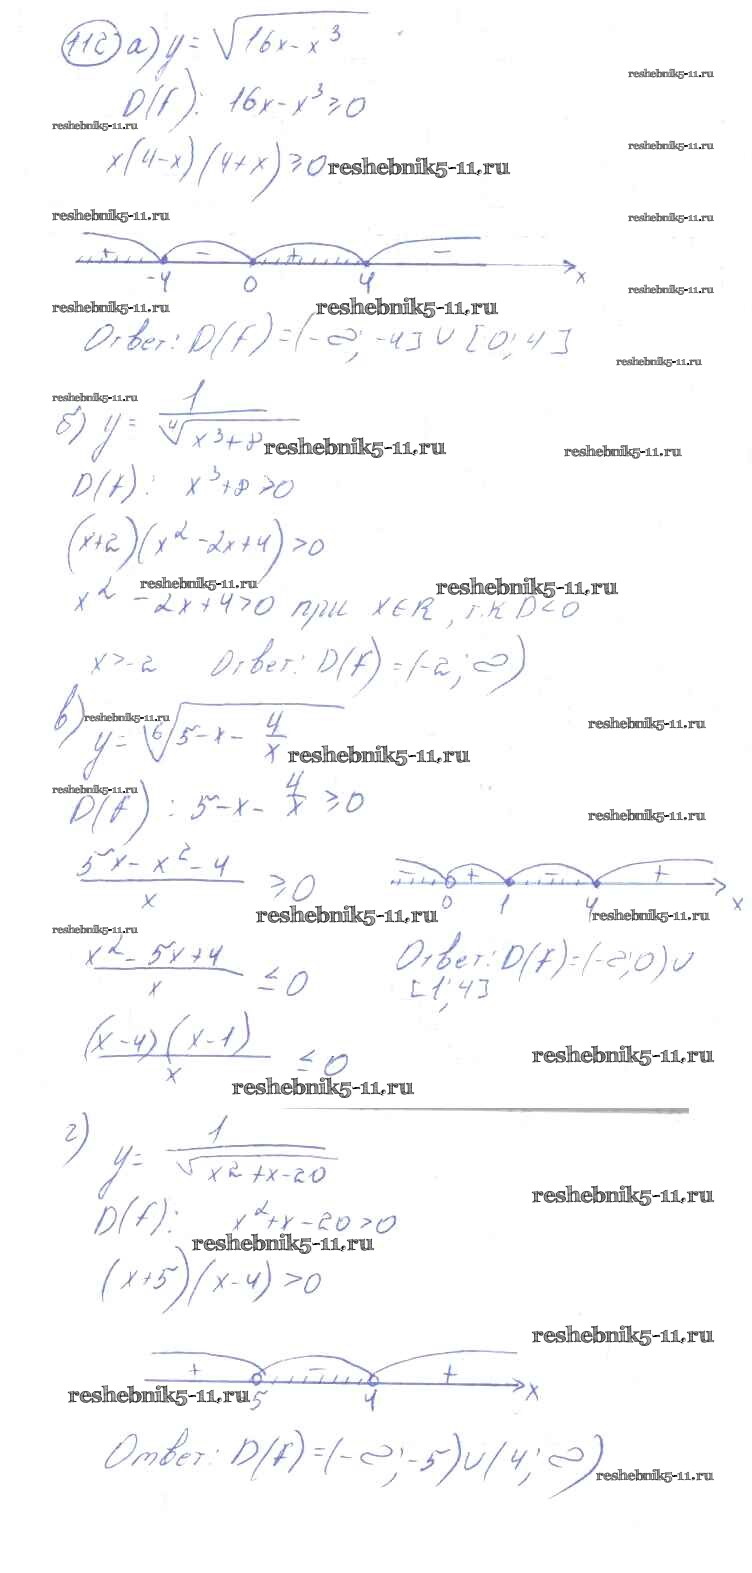 112) а) y = √(16x - x³)
reshebnik5-11.ru
D(f): 16x - x³ ≥ 0
reshebnik5-11.ru
reshebnik5-11.ru
x(4-x)(4+x) ≥ 0 reshebnik5-11.ru
reshebnik5-11.ru
reshebnik5-11.ru
+ - + -
-4 0 4 x
reshebnik5-11.ru
reshebnik5-11.ru
reshebnik5-11.ru
Ответ: D(f) = (-∞; -4] ∪ [0; 4]
reshebnik5-11.ru
reshebnik5-11.ru
б) y = 1/⁴√(x³+8)
reshebnik5-11.ru
reshebnik5-11.ru
D(f): x³+8 > 0
(x+2)(x²-2x+4) > 0
reshebnik5-11.ru
reshebnik5-11.ru
x² - 2x+4 > 0 при x∈R, т.к D < 0
x > -2 Ответ: D(f) = (-2; ∞)
reshebnik5-11.ru
reshebnik5-11.ru
в) y = ⁶√(5-x-4/x)
reshebnik5-11.ru
reshebnik5-11.ru
D(f): 5-x-4/x ≥ 0
reshebnik5-11.ru
(5x - x² - 4)/x ≥ 0
- + - +
0 1 4 x
reshebnik5-11.ru
reshebnik5-11.ru
reshebnik5-11.ru
(x² - 5x+4)/x ≤ 0
Ответ: D(f) = (-∞; 0) ∪
[1; 4]
(x-4)(x-1)/x ≤ 0
reshebnik5-11.ru
reshebnik5-11.ru
г) y = 1/√(x²+x-20)
reshebnik5-11.ru
D(f): x²+x-20 > 0
reshebnik5-11.ru
(x+5)(x-4) > 0
reshebnik5-11.ru
+ - +
reshebnik5-11.ru
5 4 x
Ответ: D(f) = (-∞; -5) ∪ (4; ∞)
reshebnik5-11.ru